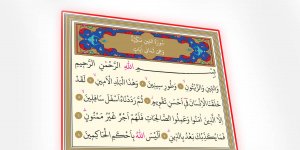 سورة التين مكية
وهي ثمان آيات
بِسْمِ اللَّهِ الرَّحْمَٰنِ الرَّحِيمِ
وَالتِّينِ وَالزَّيْتُونِ ۝ وَطُورِ سِينِينَ ۝ وَهَٰذَا الْبَلَدِ الْأَمِينِ ۝ لَقَدْ
خَلَقْنَا الْإِنْسَانَ فِي أَحْسَنِ تَقْوِيمٍ ۝ ثُمَّ رَدَدْنَاهُ أَسْفَلَ سَافِلِينَ ۝
إِلَّا الَّذِينَ آمَنُوا وَعَمِلُوا الصَّالِحَاتِ فَلَهُمْ أَجْرٌ غَيْرُ مَمْنُونٍ ۝
فَمَا يُكَذِّبُكَ بَعْدُ بِالدِّينِ ۝ أَلَيْسَ اللَّهُ بِأَحْكَمِ الْحَاكِمِينَ ۝